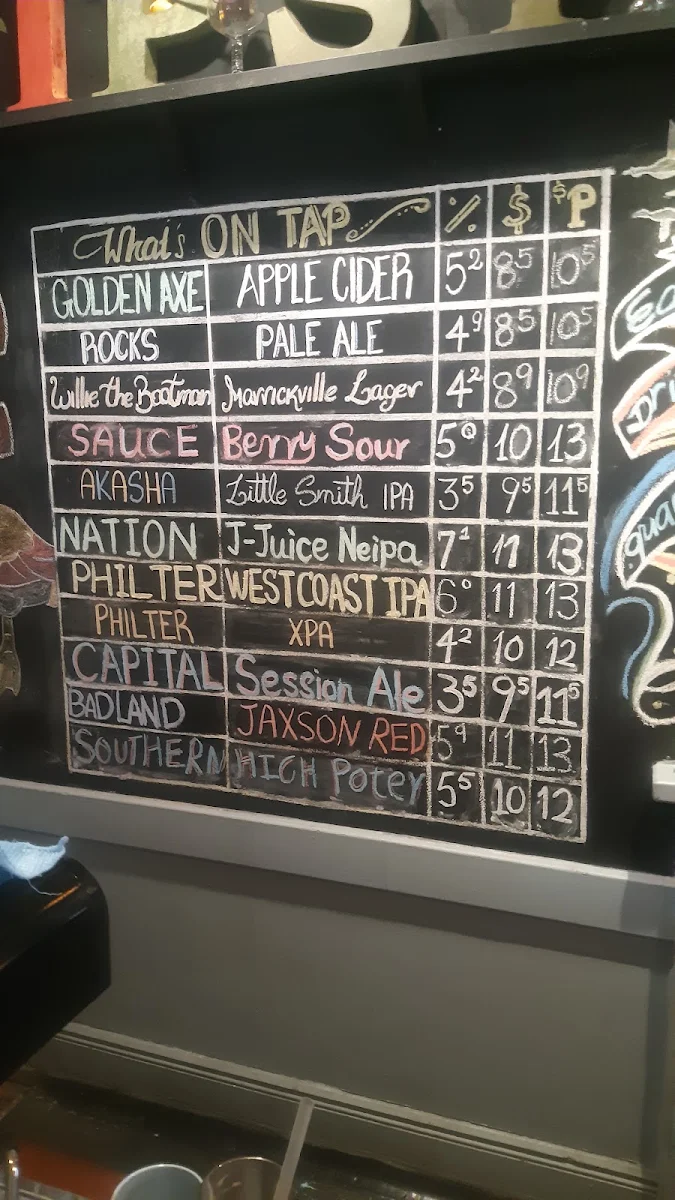 What's ON TAP % $ $P
GOLDEN AXE APPLE CIDER 5² 8⁵ 10⁵
ROCKS PALE ALE 4⁹ 8⁵ 10⁵
Willie the Boatman Marrickville Lager 4² 8⁹ 10⁹
SAUCE Berry Sour 5⁰ 10 13
AKASHA Little Smith IPA 3⁵ 9⁵ 11⁵
NATION J-Juice Neipa 7¹ 11 13
PHILTER WEST COAST IPA 6⁰ 11 13
PHILTER XPA 4² 10 12
CAPITAL Session Ale 3⁵ 9⁵ 11⁵
BADLAND JAXSON RED 5⁹ 11 13
SOUTHERN HIGH Potey 5⁵ 10 12